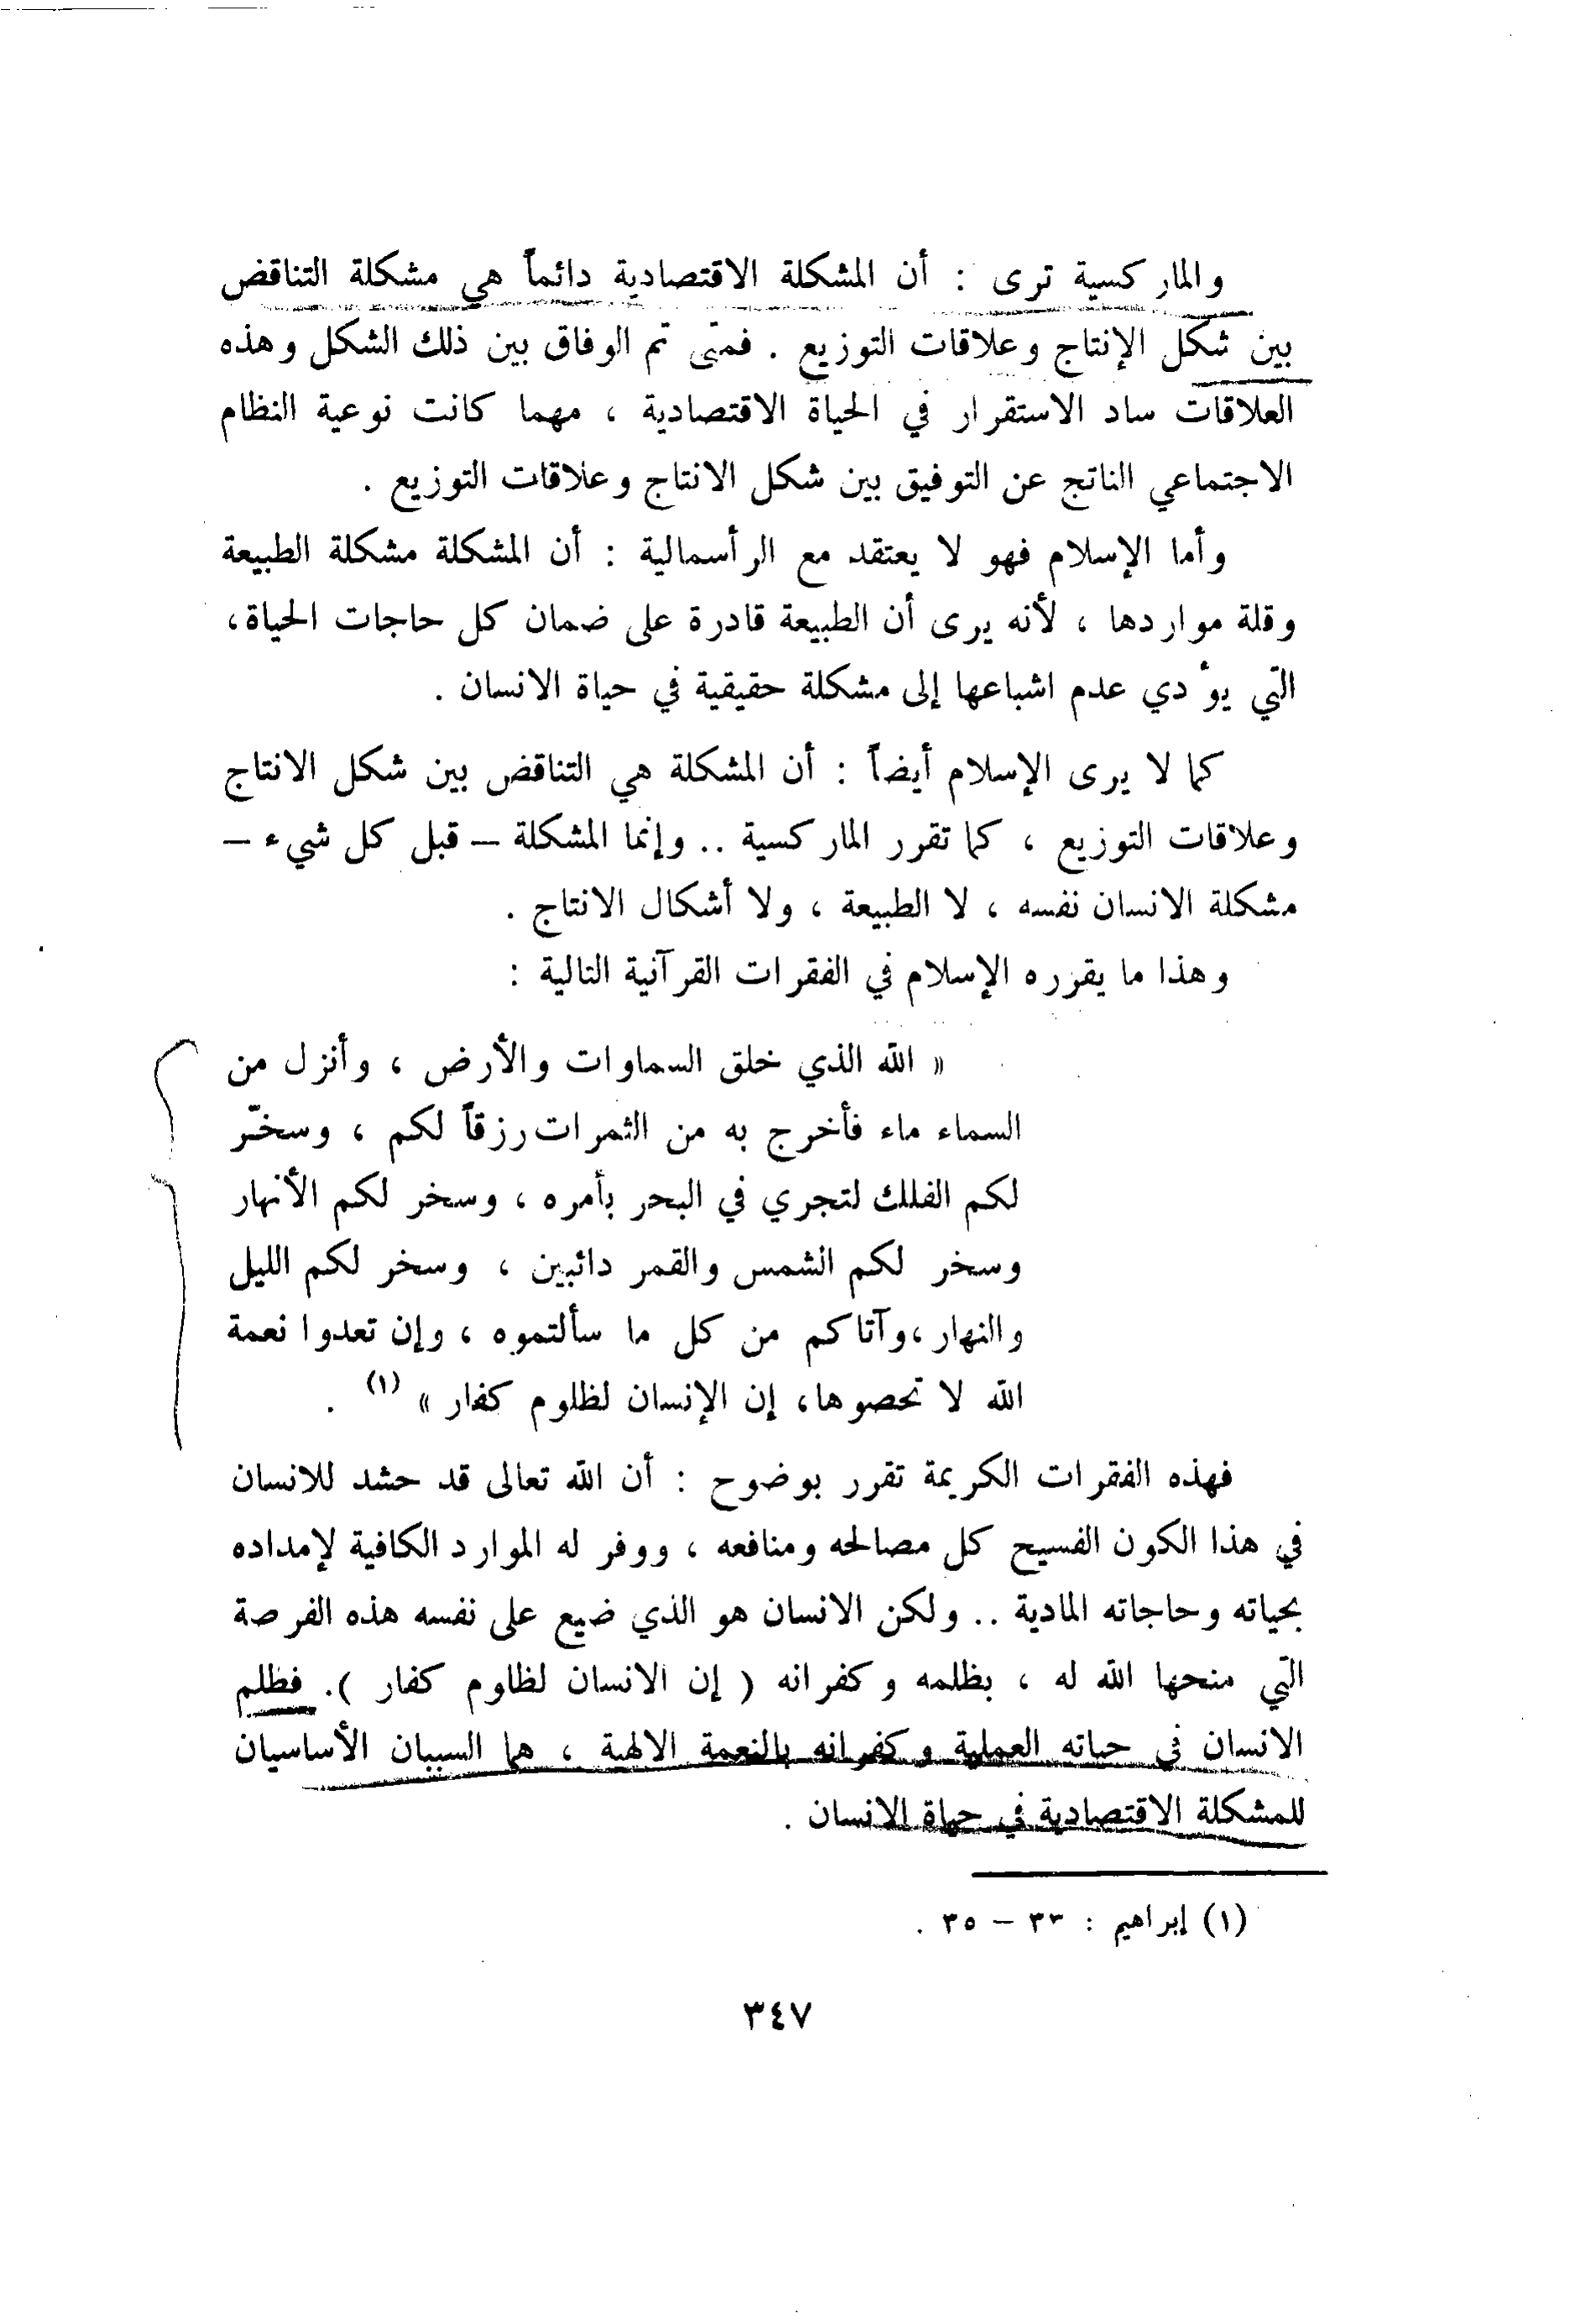 والماركسية ترى : أن المشكلة الاقتصادية دائماً هي مشكلة التناقض
بين شكل الإنتاج وعلاقات التوزيع . فمتى تم الوفاق بين ذلك الشكل وهذه
العلاقات ساد الاستقرار في الحياة الاقتصادية ، مهما كانت نوعية النظام
الاجتماعي الناتج عن التوفيق بين شكل الانتاج وعلاقات التوزيع .
وأما الإسلام فهو لا يعتقد مع الرأسمالية : أن المشكلة مشكلة الطبيعة
وقلة مواردها ، لأنه يرى أن الطبيعة قادرة على ضمان كل حاجات الحياة،
التي يؤدي عدم اشباعها إلى مشكلة حقيقية في حياة الانسان .
كما لا يرى الإسلام أيضاً : أن المشكلة هي التناقض بين شكل الانتاج
وعلاقات التوزيع ، كما تقرر الماركسية .. وإنما المشكلة – قبل كل شيء –
مشكلة الانسان نفسه ، لا الطبيعة ، ولا أشكال الانتاج .
وهذا ما يقرره الإسلام في الفقرات القرآنية التالية :
« الله الذي خلق السماوات والأرض ، وأنزل من
السماء ماء فأخرج به من الثمرات رزقاً لكم ، وسخّر
لكم الفلك لتجري في البحر بأمره ، وسخر لكم الأنهار
وسخر لكم الشمس والقمر دائبين ، وسخر لكم الليل
والنهار ،وآتاكم من كل ما سألتموه ، وإن تعدوا نعمة
الله لا تحصوها، إن الإنسان لظلوم كفار » (١) .
فهذه الفقرات الكريمة تقرر بوضوح : أن الله تعالى قد حشد للانسان
في هذا الكون الفسيح كل مصالحه ومنافعه ، ووفر له الموارد الكافية لإمداده
بحياته وحاجاته المادية .. ولكن الانسان هو الذي ضيع على نفسه هذه الفرصة
التي منحها الله له ، بظلمه وكفرانه ( إن الانسان لظلوم كفار ). فظلم
الانسان في حياته العملية وكفرانه بالنعمة الالهية ، هما السببان الأساسيان
للمشكلة الاقتصادية في حياة الانسان .
(١) إبراهيم : ٣٣ – ٣٥ .
٣٤٧